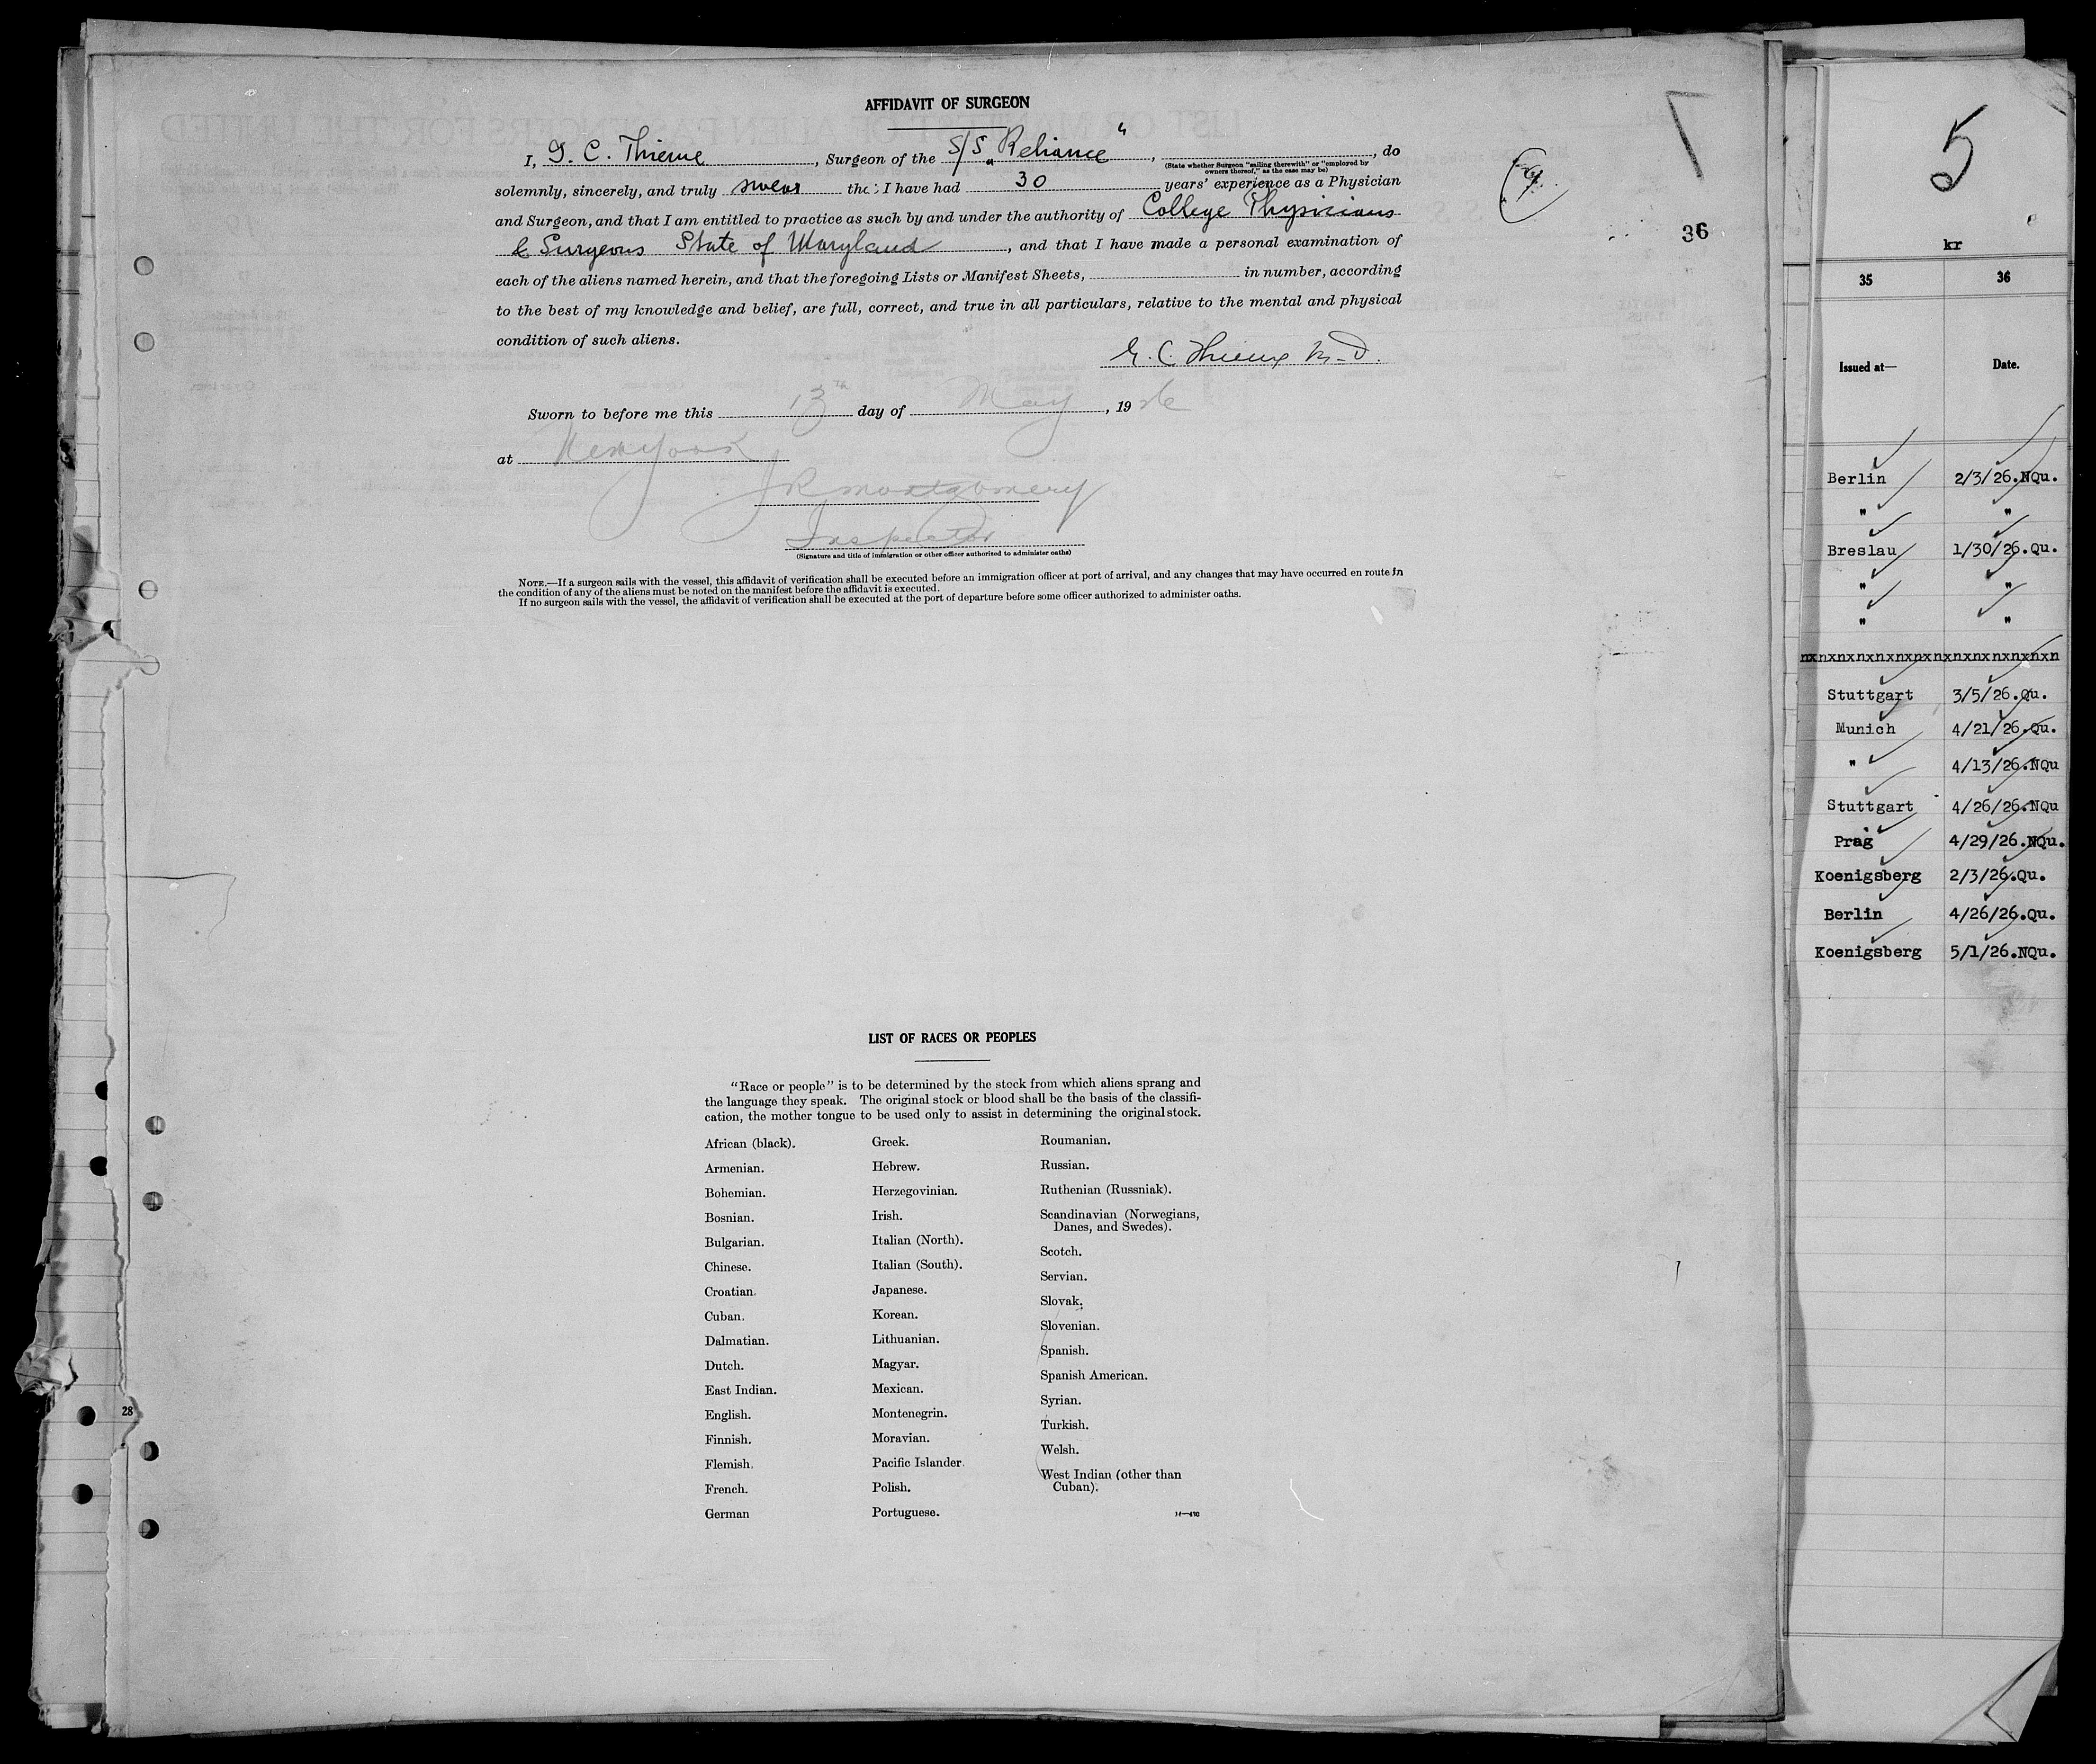 AFFIDAVIT OF SURGEON
I, G. C. Thieme, Surgeon of the S/S "Reliance", , do
(State whether Surgeon "sailing therewith" or "employed by
owners thereof," as the case may be)
solemnly, sincerely, and truly swear the I have had 30 years' experience as a Physician
and Surgeon, and that I am entitled to practice as such by and under the authority of College Physicians
& Surgeons State of Maryland, and that I have made a personal examination of
each of the aliens named herein, and that the foregoing Lists or Manifest Sheets, in number, according
to the best of my knowledge and belief, are full, correct, and true in all particulars, relative to the mental and physical
condition of such aliens.
G. C. Thieme M.D.
Sworn to before me this 13th day of May, 1926
at New York
J R Montgomery
Inspector
(Signature and title of immigration or other officer authorized to administer oaths)
NOTE.—If a surgeon sails with the vessel, this affidavit of verification shall be executed before an immigration officer at port of arrival, and any changes that may have occurred en route in
the condition of any of the aliens must be noted on the manifest before the affidavit is executed.
If no surgeon sails with the vessel, the affidavit of verification shall be executed at the port of departure before some officer authorized to administer oaths.
36
LIST OF RACES OR PEOPLES
"Race or people" is to be determined by the stock from which aliens sprang and
the language they speak. The original stock or blood shall be the basis of the classifi-
cation, the mother tongue to be used only to assist in determining the original stock.
African (black).
Armenian.
Bohemian.
Bosnian.
Bulgarian.
Chinese.
Croatian.
Cuban.
Dalmatian.
Dutch.
East Indian.
English.
Finnish.
Flemish.
French.
German
Greek.
Hebrew.
Herzegovinian.
Irish.
Italian (North).
Italian (South).
Japanese.
Korean.
Lithuanian.
Magyar.
Mexican.
Montenegrin.
Moravian.
Pacific Islander.
Polish.
Portuguese.
Roumanian.
Russian.
Ruthenian (Russniak).
Scandinavian (Norwegians,
Danes, and Swedes).
Scotch.
Servian.
Slovak.
Slovenian.
Spanish.
Spanish American.
Syrian.
Turkish.
Welsh.
West Indian (other than
Cuban).
28
5
kr
35 36
Issued at— Date.
Berlin 2/3/26.NQu.
" "
Breslau 1/30/26.Qu.
" "
" "
nxnxnxnxnxnxnxnxnxnxnxnxnxn
Stuttgart 3/5/26.Qu.
Munich 4/21/26.Qu.
" 4/13/26.NQu
Stuttgart 4/26/26.NQu
Prag 4/29/26.NQu.
Koenigsberg 2/3/26.Qu.
Berlin 4/26/26.Qu.
Koenigsberg 5/1/26.NQu.